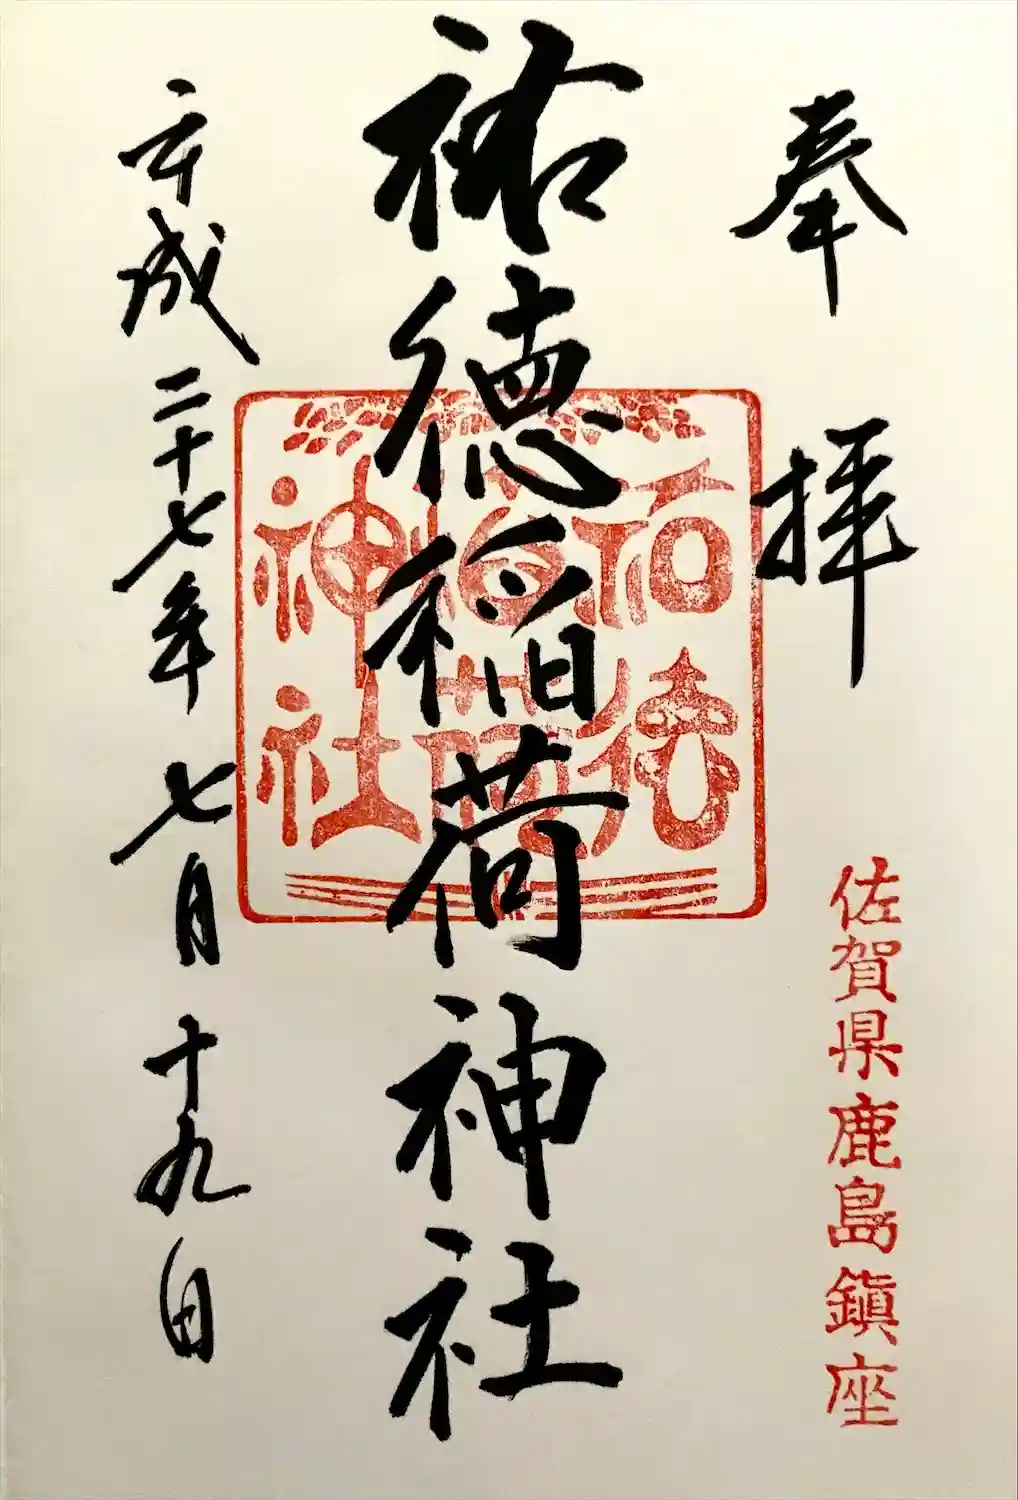 奉拝
佐賀県鹿島鎮座
祐徳稲荷神社
祐徳
稲荷
神社
平成二十七年七月十九日